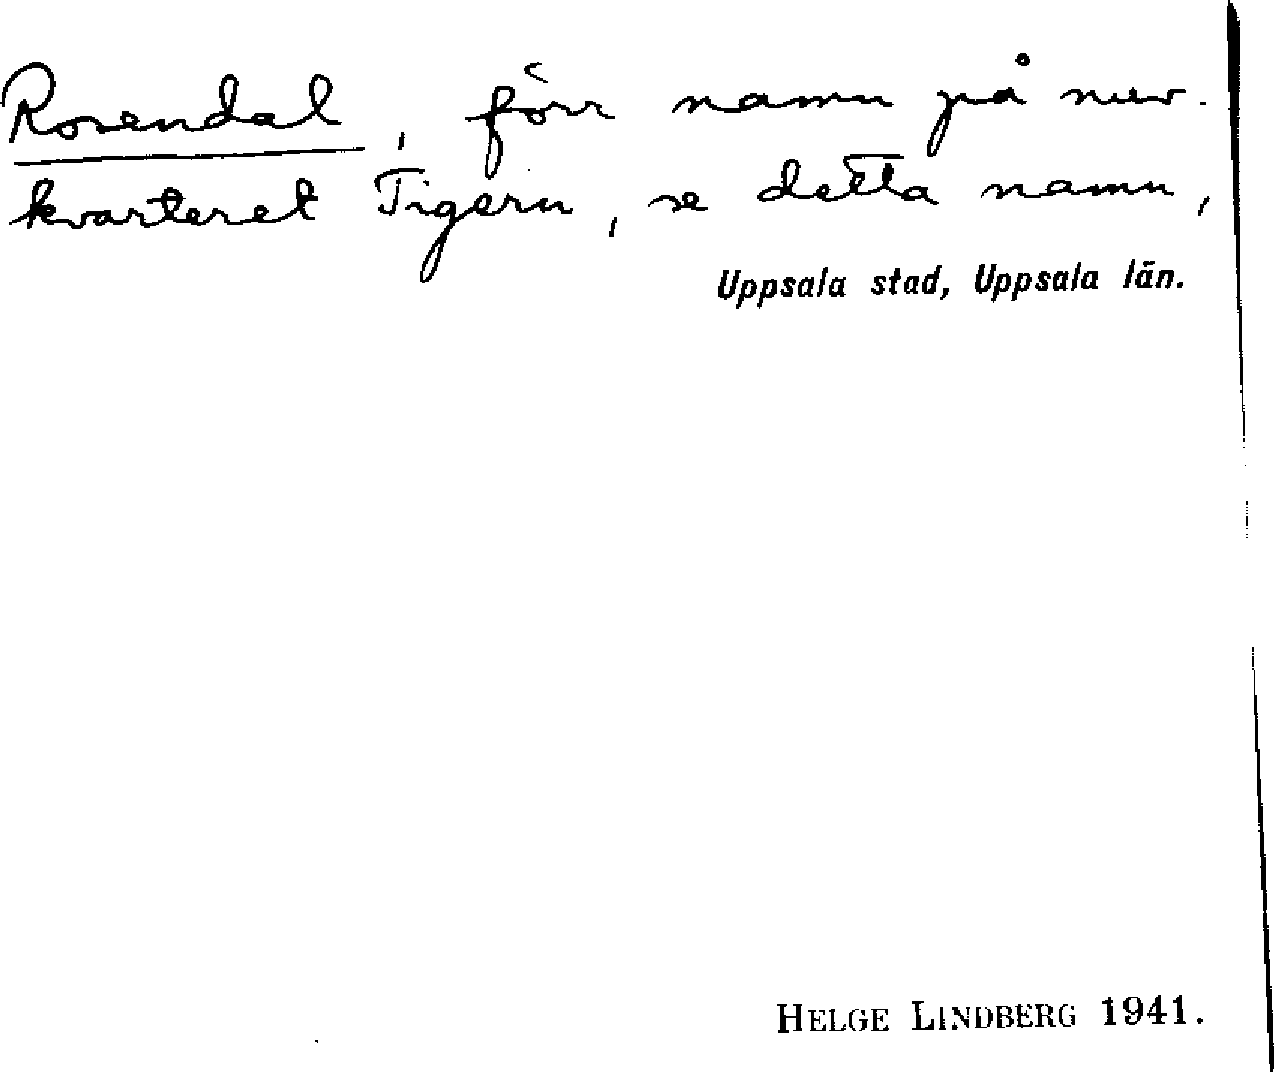 Rosendal, förr namn på nuv.
kvarteret Tigern, se detta namn,
Uppsala stad, Uppsala län.
HELGE LINDBERG 1941.